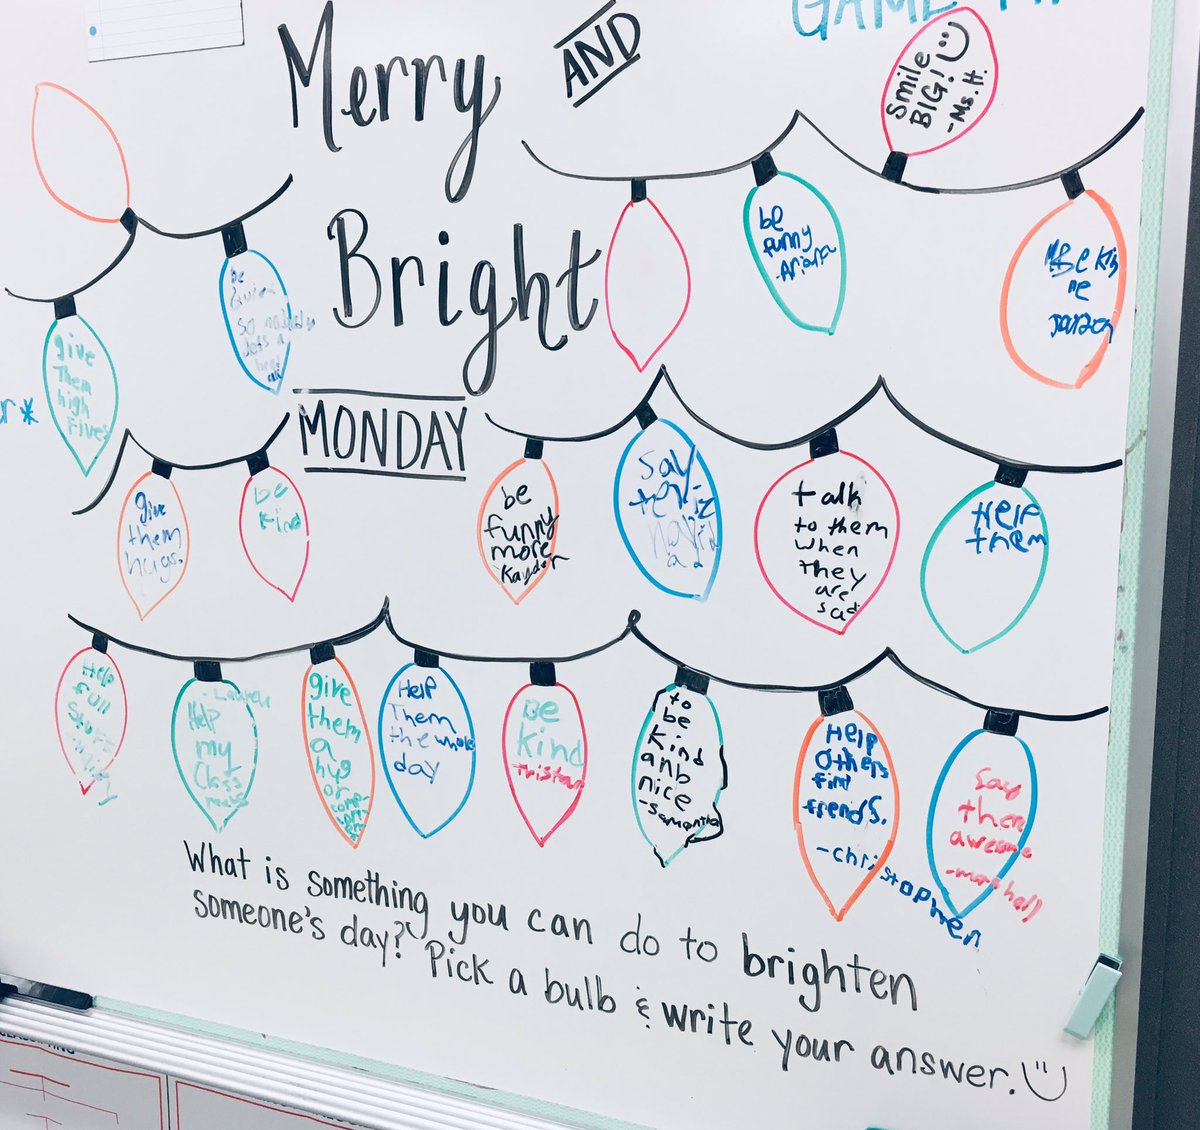 GAME
Merry
AND
Bright
MONDAY
smile
BIG!
-Ms. H.
be
funny
Be
be
so nobody
give
Them
high
Fives
give
them
hugs.
be
kind
be
funny
more
Kayden
Say
talk
to them
when
they
are
sad
HELP
them
Help
-Lauren
Help
my
Class
give
them
a
hug
or
HeLP
Them
the whole
day
Be
kind
tristan
to
be
kind
anb
nice
-samantha
HeLP
others
find
friends.
-christopher
Say
there
awesome
-marshall
What is something you can do to brighten
someone's day? Pick a bulb & write your answer.